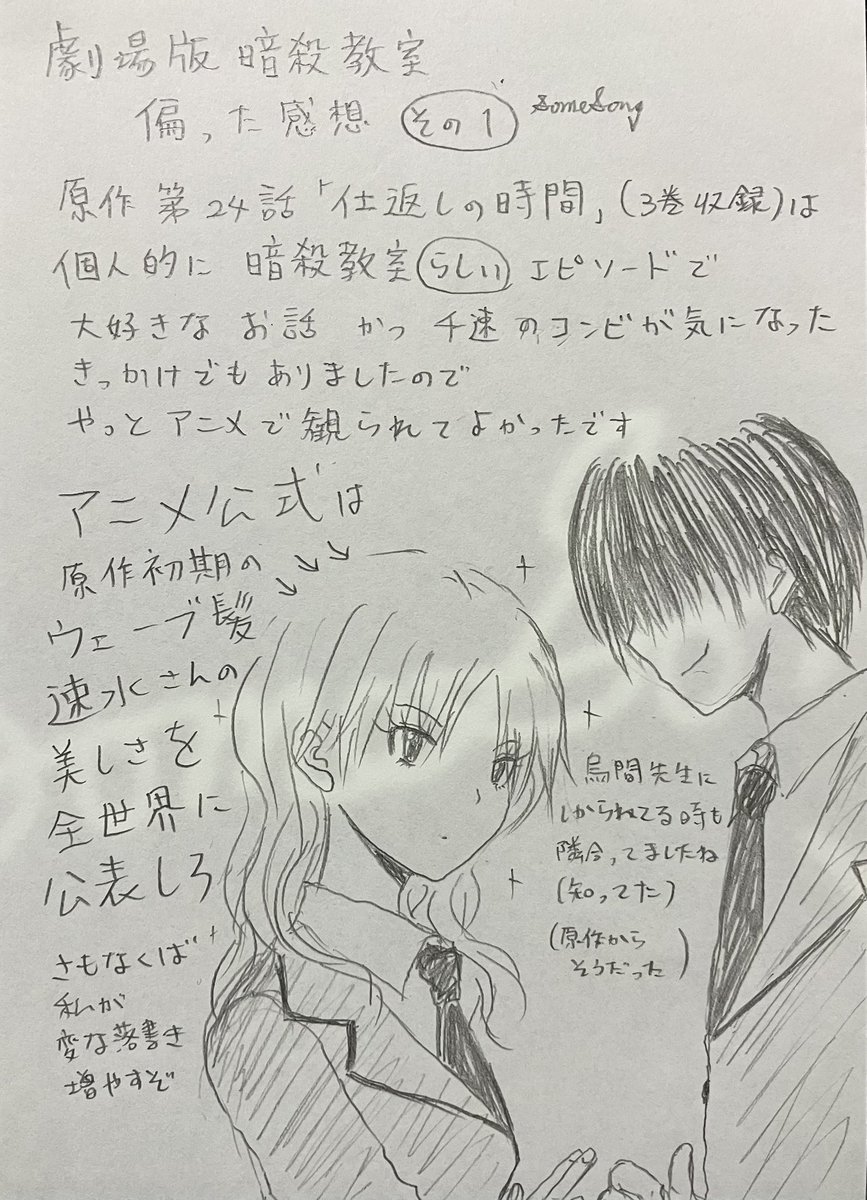 劇場版 暗殺教室
偏った感想 その1 SomeSong
原作 第24話「仕返しの時間」(3巻収録)は
個人的に 暗殺教室らしい エピソードで
大好きな お話 かつ 千速のコンビが気になった
きっかけでも ありましたので
やっと アニメで観られてよかったです
アニメ公式は
原作初期の
ウェーブ髪
速水さんの
美しさを
全世界に
公表しろ
さもなくば
私が
変な落書き
増やすぞ
烏間先生に
しかられてる時も
隣合ってましたね
(知ってた)
(原作から
そうだった)